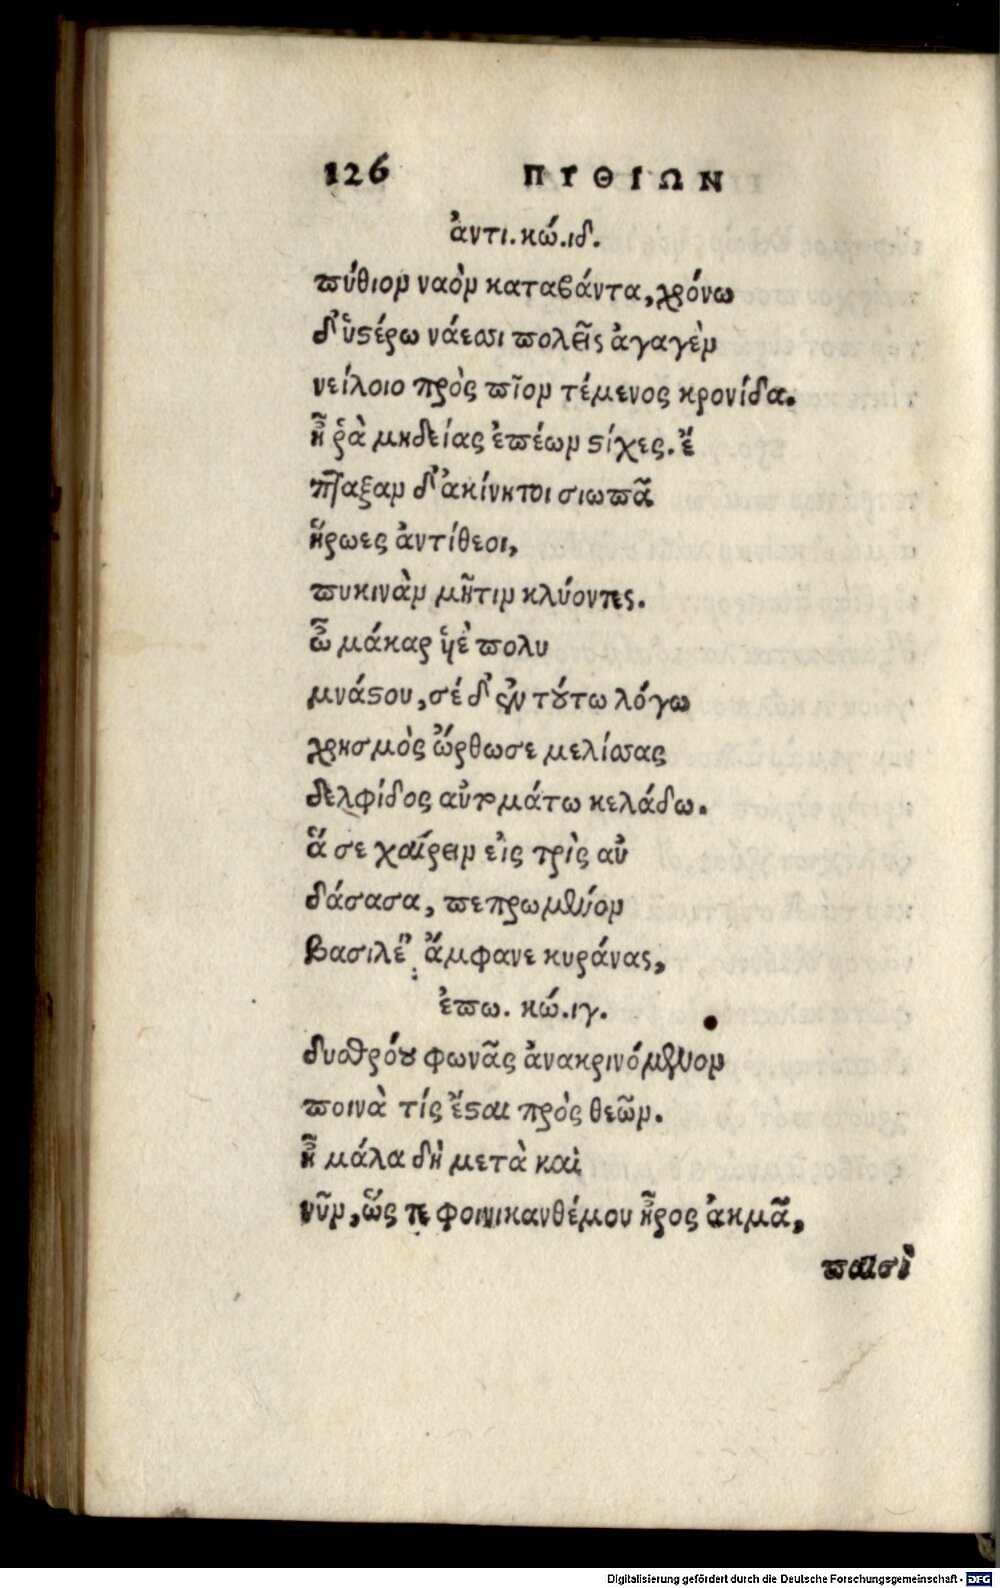 126 ΠΥΘΙΩΝ
ἀντι. κώ. ιδ.
πύθιον ναὸν καταβάντα, χρόνω
δ' ὑστέρω νάεσσι πολεῖς ἀγαγὲν
νείλοιο πρὸς πῖον τέμενος κρονίδα.
ἦ ῥὰ μηδείας ἐπέων στίχες. ἔ
πταξαν δ' ἀκίνητοι σιωπᾶ
ἥρωες ἀντίθεοι,
πυκινὰν μῆτιν κλύοντες.
ὦ μάκαρ ὑὲ πολυ
μνάστου, σέ δ' ἐν τούτω λόγω
χρησμὸς ὤρθωσε μελίσσας
δελφίδος αὐτομάτω κελάδω.
ἅ σε χαίρειν εἰς τρὶς αὐ
δάσασα, πεπρωμένον
βασιλέ' ἄμφανε κυράνας,
ἐπω. κώ. ιγ.
δυσθρόου φωνᾶς ἀνακρινόμενον
ποινὰ τίς ἔσται πρὸς θεῶν.
ἦ μάλα δὴ μετὰ καὶ
νῦν, ὥς τε φοινικανθέμου ἦρος ἀκμᾶ,
παισὶ
Digitalisierung gefördert durch die Deutsche Forschungsgemeinschaft - DFG